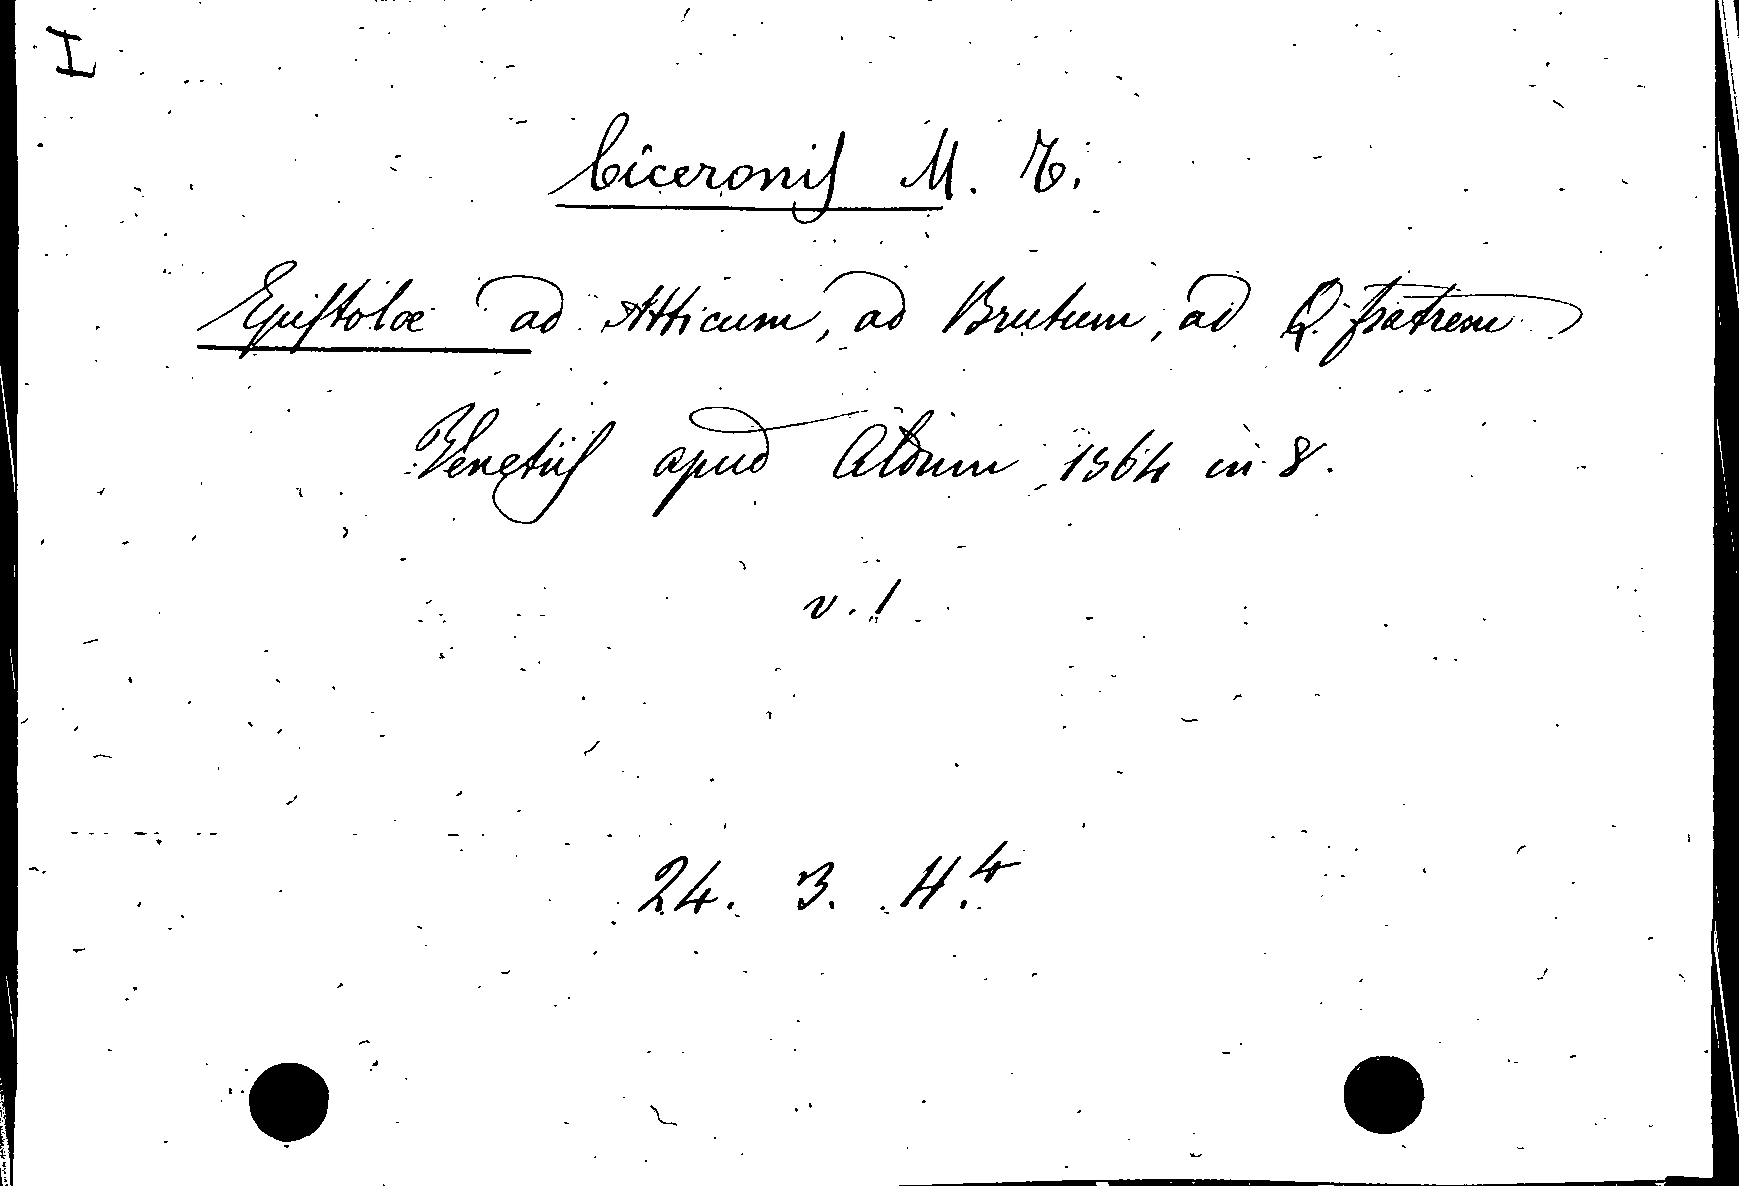 I
Ciceronis M. T.
Epistolæ ad Atticum, ad Brutum, ad Q. fratrem
Venetiis apud Aldum 1564 in 8.
v. 1
24. 3. H.4